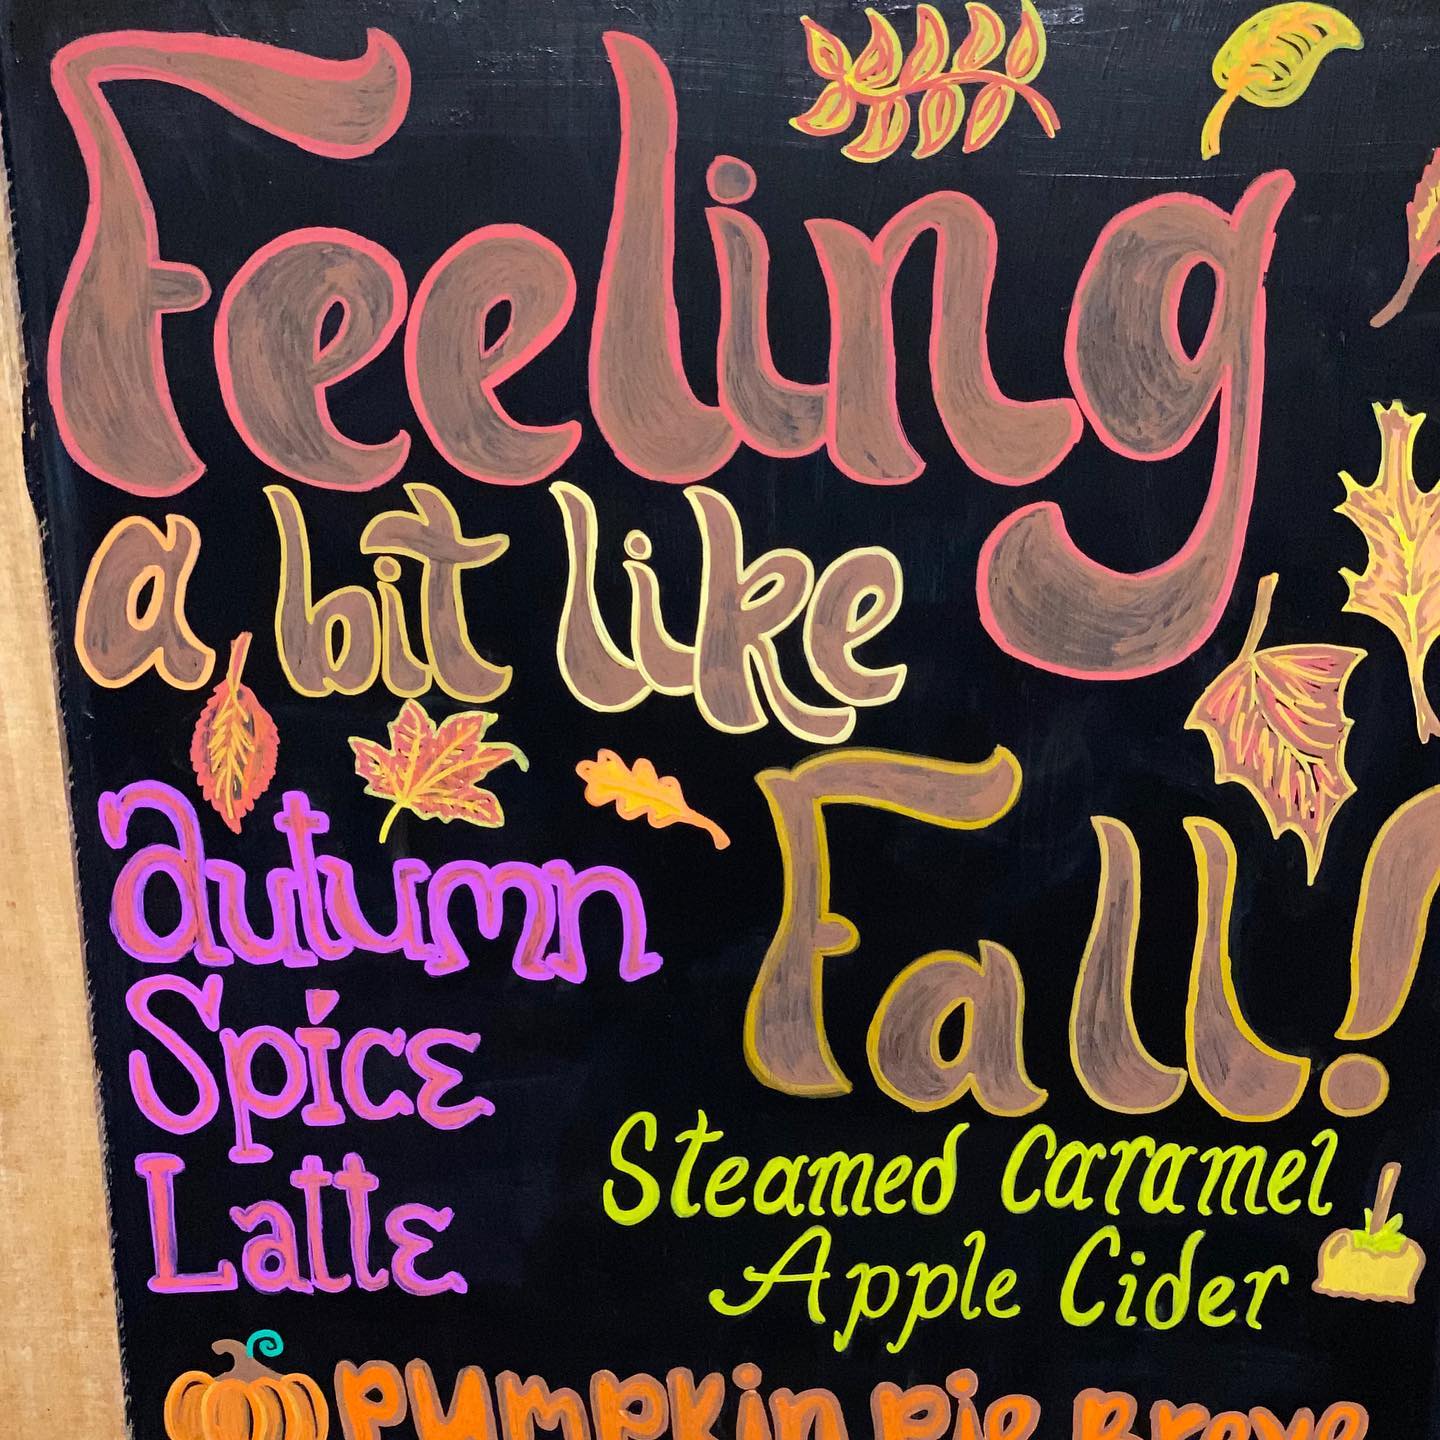 Feeling
a bit like
Fall!
autumn
Spice
Latte
Steamed Caramel
Apple Cider
Pumpkin Pie Breve